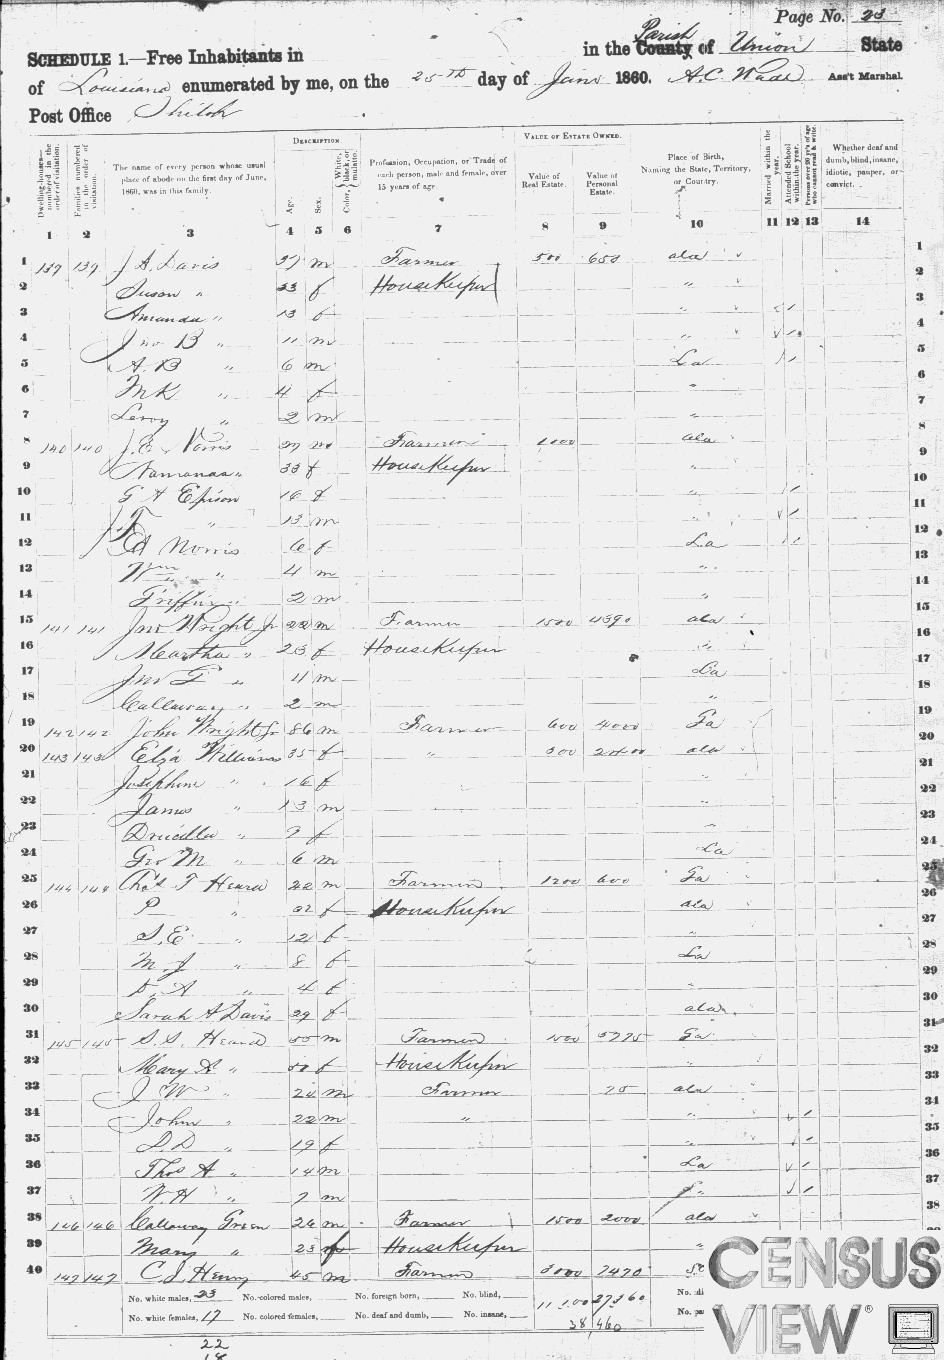 Page No. 23
SCHEDULE 1.—Free Inhabitants in in the County of Parish Union State
of Louisiana enumerated by me, on the 25th day of June 1860. A.C. Wade Ass't Marshal.
Post Office Shiloh
Dwelling-houses—numbered in the order of visitation.
Families numbered in the order of visitation.
The name of every person whose usual place of abode on the first day of June, 1860, was in this family.
DESCRIPTION.
Age.
Sex.
Color, White, black, or mulatto.
Profession, Occupation, or Trade of each person, male and female, over 15 years of age.
VALUE OF ESTATE OWNED.
Value of Real Estate.
Value of Personal Estate.
Place of Birth, Naming the State, Territory, or Country.
Married within the year.
Attended School within the year.
Persons over 20 y'rs of age who cannot read & write.
Whether deaf and dumb, blind, insane, idiotic, pauper, or convict.
1 2 3 4 5 6 7 8 9 10 11 12 13 14
1 139 139 J A Davis 37 m Farmer 500 650 ala 1
2 Susan " 33 f HouseKeeper " 2
3 Amanda " 13 f " / 3
4 Jno B " 11 m " / 4
5 A. B " 6 m La / 5
6 M K " 4 f " 6
7 Leroy " 2 m " 7
8 140 140 J. E. Norris m Farmer 1000 ala 8
9 " 33 f HouseKeeper " 9
10 G A 16 f " / 10
11 " 13 m " / 11
12 Norris 6 f La / 12
13 Wm " 4 m " 13
14 Griffin " 2 m " 14
15 141 141 Jno Wright Jr 22 m Farmer 1500 4390 ala 15
16 Martha " 23 f HouseKeeper " 16
17 Jno G " m La 17
18 Callaway " 2 m " 18
19 142 142 John Wright Sr 86 m Farmer 600 4000 Ga 19
20 143 143 Eliza Williams 35 f " 300 ala 20
21 Josephine " 16 f " 21
22 James " 13 m " 22
23 Drucilla " f " 23
24 Geo M " 6 m La 24
25 144 144 Chas T Heard m Farmer 1200 600 Ga 25
26 P " f HouseKeeper ala 26
27 S. E " 12 f " 27
28 M J " 8 f La 28
29 " 4 f " 29
30 Sarah A Davis 29 f ala 30
31 145 145 S. S. Heard 55 m Farmer 1500 5775 Ga 31
32 Mary A " f HouseKeeper " 32
33 J W " 24 m Farmer 75 ala 33
34 John " 22 m " " / 34
35 S. D " 19 f " / 35
36 Thos A " 14 m La / 36
37 W. H " 7 m " / 37
38 146 146 Callaway Green 26 m Farmer 1500 2000 ala 38
39 Mary " 23 f HouseKeeper "
40 147 147 C. J. Henry 45 m Farmer 3000 7470
No. white males, 23 No. colored males, No. foreign born, No. blind, 11,100 27,360
No. white females, 17 No. colored females, No. deaf and dumb, No. insane, 38,460
22
18
CENSUS
VIEW®